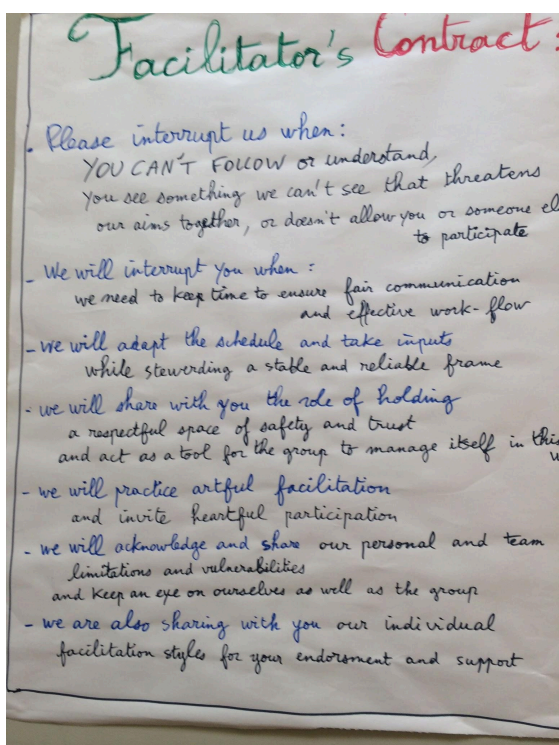 Facilitator's Contract:
. Please interrupt us when:
YOU CAN'T FOLLOW or understand,
You see something we can't see that threatens
our aims together, or doesn't allow you or someone el
to participate
- We will interrupt you when:
we need to keep time to ensure fair communication
and effective work-flow
- we will adapt the schedule and take inputs
while stewerding a stable and reliable frame
- we will share with you the role of holding
a respectful space of safety and trust
and act as a tool for the group to manage itself in this
w
- we will practice artful facilitation
and invite heartful participation
- we will acknowledge and share our personal and team
limitations and vulnerabilities
and keep an eye on ourselves as well as the group
- we are also sharing with you our individual
facilitation styles for your endorsment and support